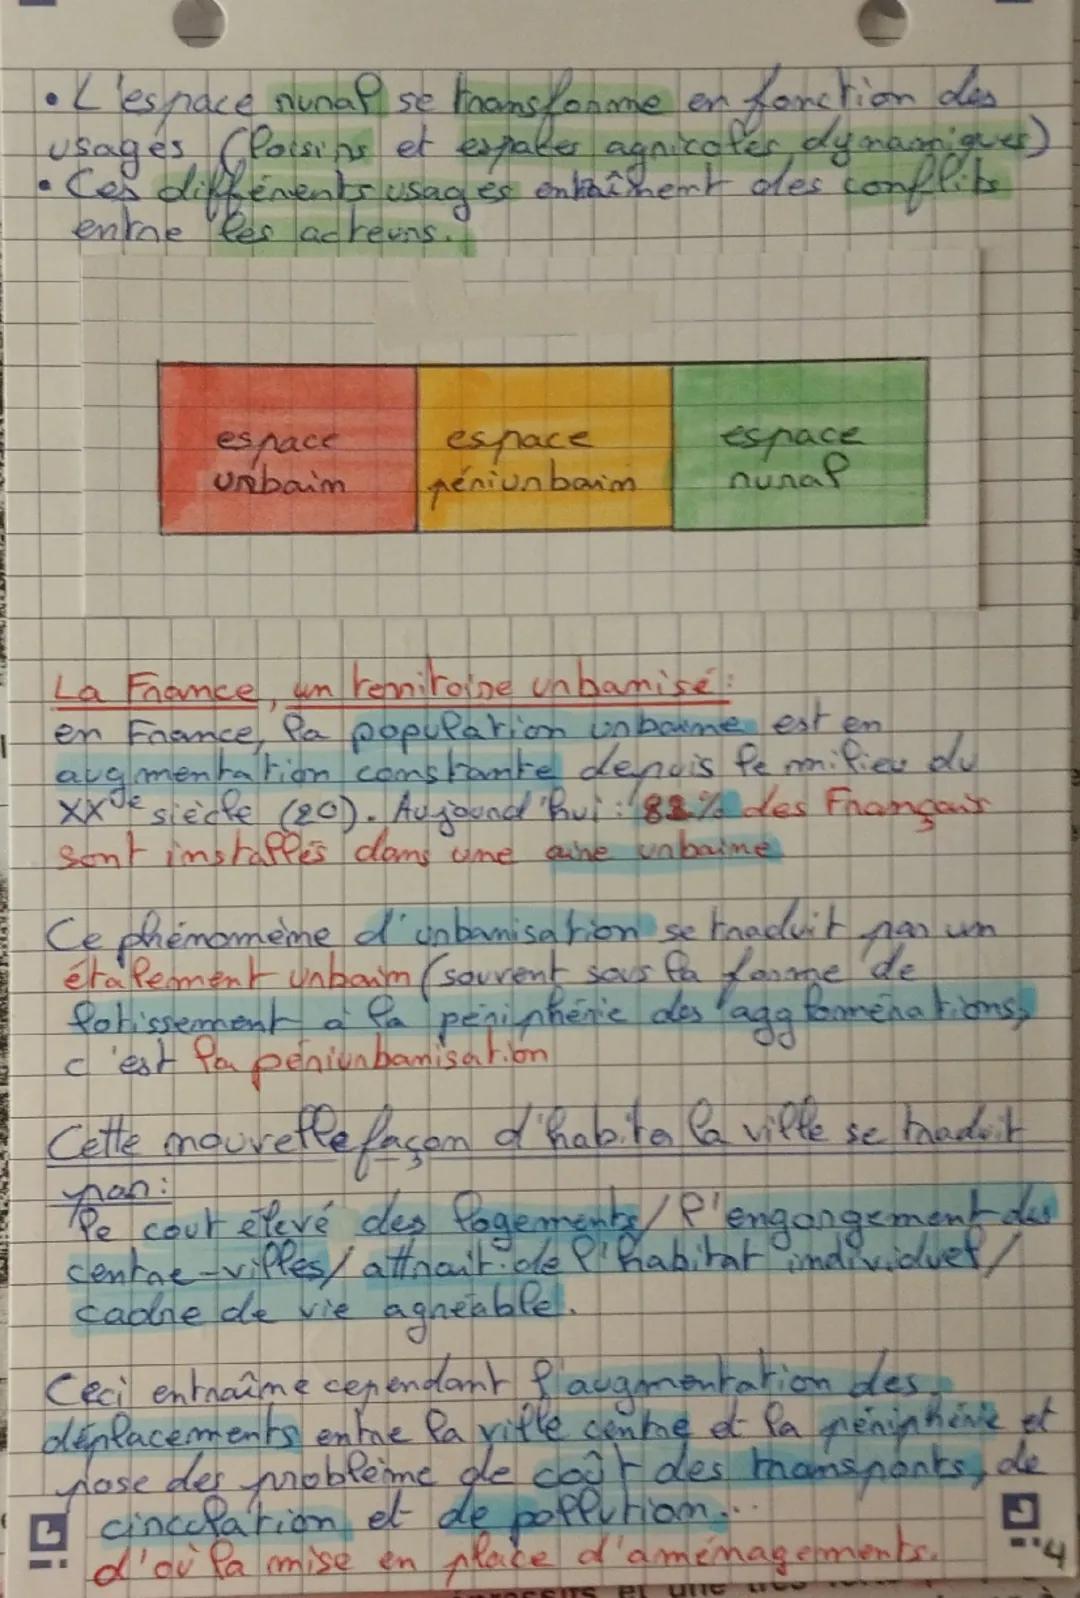 • L'espace rural se transforme en fonction des
usages (loisirs et espaces agricoles dynamiques)
• Ces différents usages entraînent des conflits
entre les acteurs.
espace
urbain
espace
périurbain
espace
rural
La France, un territoire urbanisé :
en France, la population urbaine est en
augmentation constante depuis le milieu du
XXde siècle (20). Aujourd'hui : 82% des Français
sont installés dans une aire urbaine
Ce phénomème d'urbanisation se traduit par un
étalement urbain (souvent sous la forme de
lotissement à la périphérie des agglomérations,
c'est la périurbanisation
Cette nouvelle façon d'habiter la ville se traduit
par :
le cout élevé des logements/ l'engorgement des
centre-villes/ attrait de l'habitat individuel/
cadre de vie agréable.
Ceci entraîne cependant l'augmentation des
déplacements entre la ville centre et la périphérie et
pose des problème de coût des transports, de
circulation et de pollution...
d'où la mise en place d'aménagements.
4